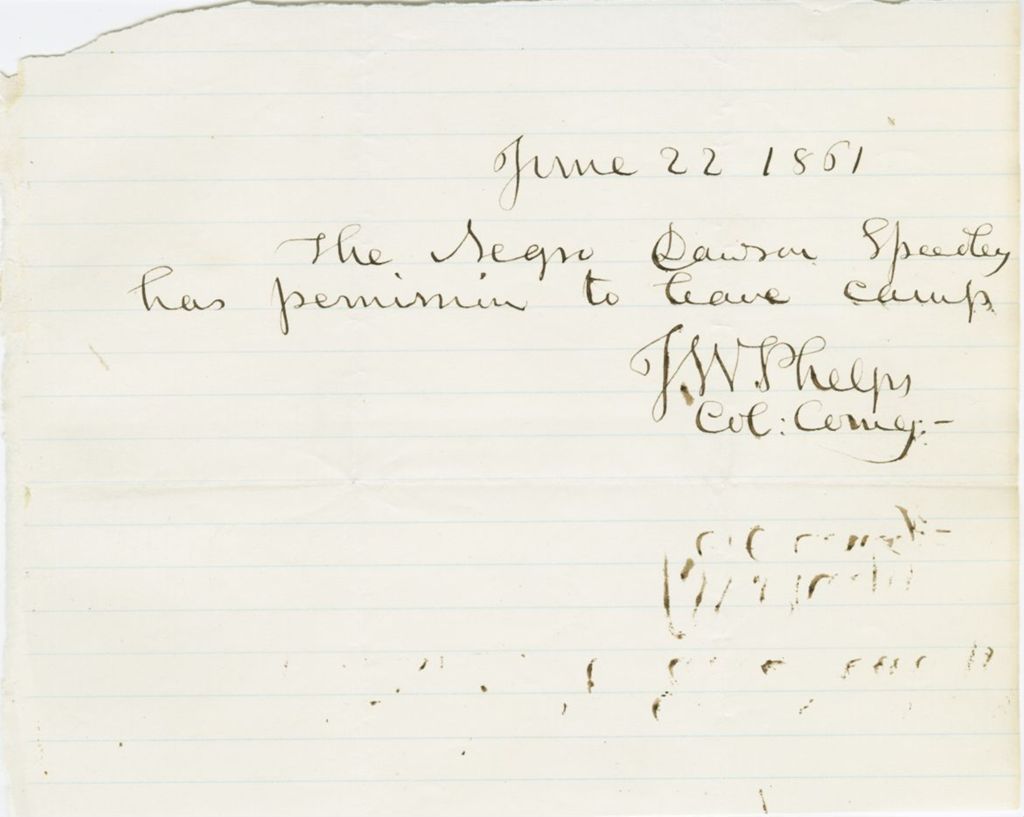 June 22 1861
The Negro Dawson Speedley
has permission to leave camp
J W Phelps
Col: Comg:-